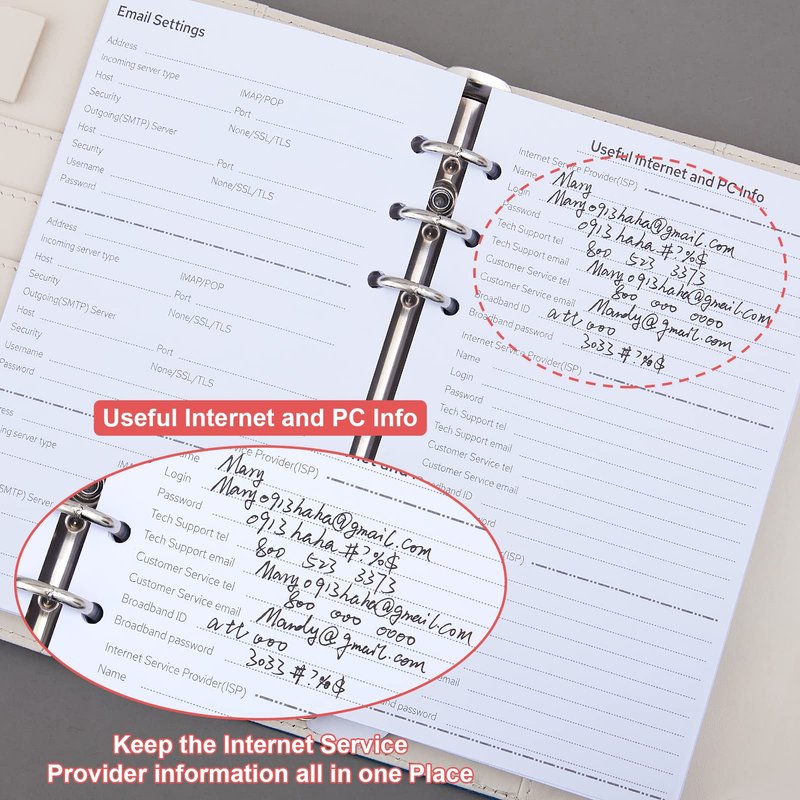 Email Settings
Address
Incoming server type
IMAP/POP
Host
Port
Security
None/SSL/TLS
Outgoing(SMTP) Server
Host
Port
Security
None/SSL/TLS
Username
Password
Address
Incoming server type
IMAP/POP
Host
Port
Security
None/SSL/TLS
Outgoing(SMTP) Server
Host
Port
Security
None/SSL/TLS
Username
Password
Address
server type
SMTP) Server
Useful Internet and PC Info
Internet Service Provider(ISP)
Name Mary
Login Mary0913haha@gmail.com
Password 0913haha#?%$
Tech Support tel 800 523 3373
Tech Support email Mary0913haha@gmail.com
Customer Service tel 800 000 0000
Customer Service email Mandy@gmail.com
Broadband ID att000
Broadband password 3033#?%$
Internet Service Provider(ISP)
Name
Login
Password
Tech Support tel
Tech Support email
Customer Service tel
Customer Service email
Broadband ID
Useful Internet and PC Info
Service Provider(ISP)
Mary
Login Mary0913haha@gmail.com
Password 0913haha#?%$
Tech Support tel 800 523 3373
Tech Support email Mary0913haha@gmail.com
Customer Service tel 800 000 0000
Customer Service email Mandy@gmail.com
Broadband ID att000
Broadband password 3033#?%$
Internet Service Provider(ISP)
Name
email
password
Keep the Internet Service
Provider information all in one Place